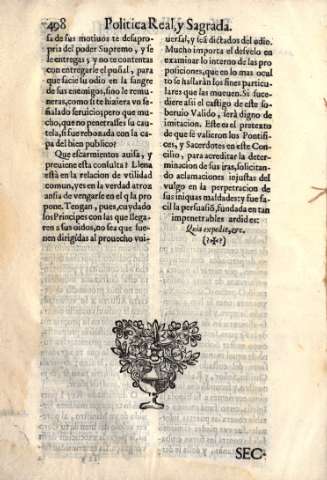 408 Politica Real, y Sagrada.
sa de sus motiuos te desapro-
pria del poder Supremo, y se
le entregas; y no te contentas
con entregarle el puñal, para
que sacie lu odio en la sangre
de sus enemigos, sino le remu-
neras, como si te hiziera vo se-
ñalado seruicio; pero que mu-
cho, que no penetrasses la cau-
tela, si fue rebonada con la ca-
pa del bien publico?
Que escarmientos auisa, y
preuiene esta consulta? Llena
està en la relacion de vtilidad
comun, y es en la verdad atroz
ansia de vengarse en el q̃ la pro
pone. Tengan, pues, cuydado
los Principes con las que llega-
ren a sus oidos, no sea que fue-
nen dirigidas al prouecho vni-
uersal, y seã dictados del odio.
Mucho importa el desvelo en
examinar lo interno de las pro
posiciones, que en lo mas ocul
to se hallaràn los fines particu-
lares que las mueuen. Si suce-
diere assi el castigo de este so-
beruio Valido, serà digno de
imitacion. Este es el pretexto
de que se valieron los Pontifi-
ces, y Sacerdotes en este Conci-
lio, para acreditar la deter-
minacion de sus iras, solicitan-
do aclamaciones injustas del
vulgo en la perpetracion de
sus iniquas maldades; y fue fa-
cil la persuasiõ, fundada en tan
impenetrables ardides:
Quia expedit, &c.
(?✠?)
SEC-